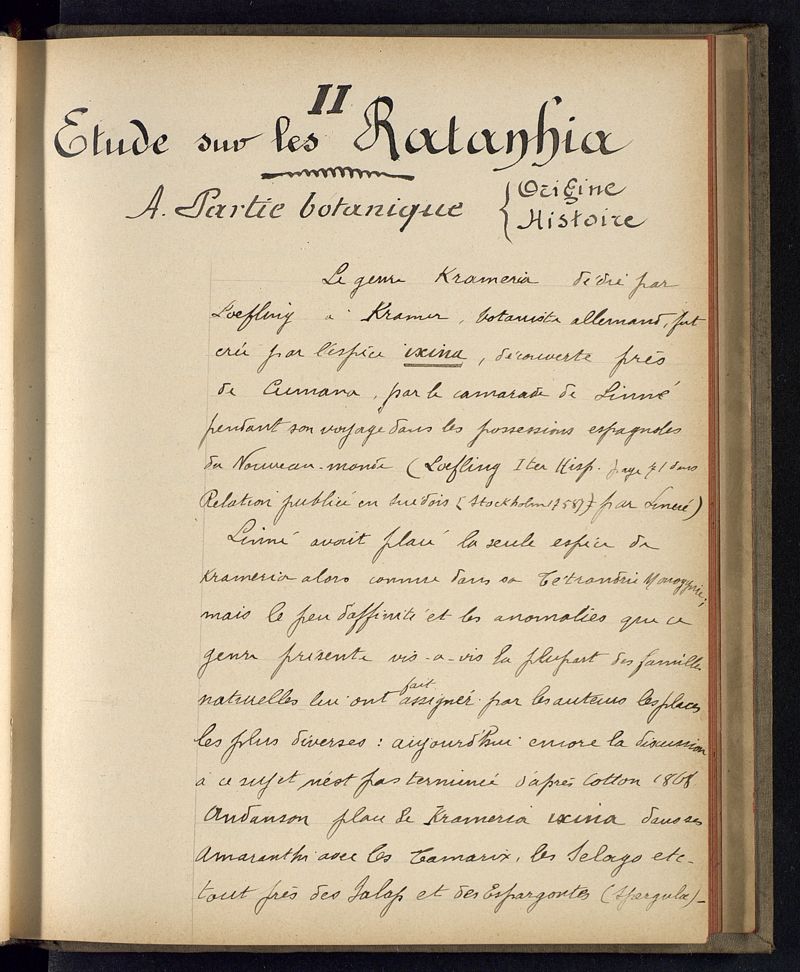 II
Etude sur les Ratanhia
A. Partie botanique { Origine
Histoire
Le genre Krameria dédié par
Loefling à Kramer, botaniste allemand, fut
créé par l'espèce ixina, découverte près
de Cumana, par le camarade de Linné
pendant son voyage dans les possessions espagnoles
du Nouveau-monde (Loefling Iter Hisp. page 71 dans
Relation publiée en suédois [Stockholm 1758] par Linné)
Linné avait placé la seule espèce de
Krameria alors connue dans sa Tétrandrie Monogynie;
mais le peu d'affinité et les anomalies que ce
genre présente vis-a-vis la plupart des familles
naturelles lui ont fait assigner par les auteurs les places
les plus diverses : aujourd'hui encore la discussion
à ce sujet n'est pas terminée d'après Cotton 1868
Andanson place le Krameria ixina dans ses
Amaranthi avec les Tamarix, les Selago etc-
tout près des Jalap et des Espargoutes (Spergula)-